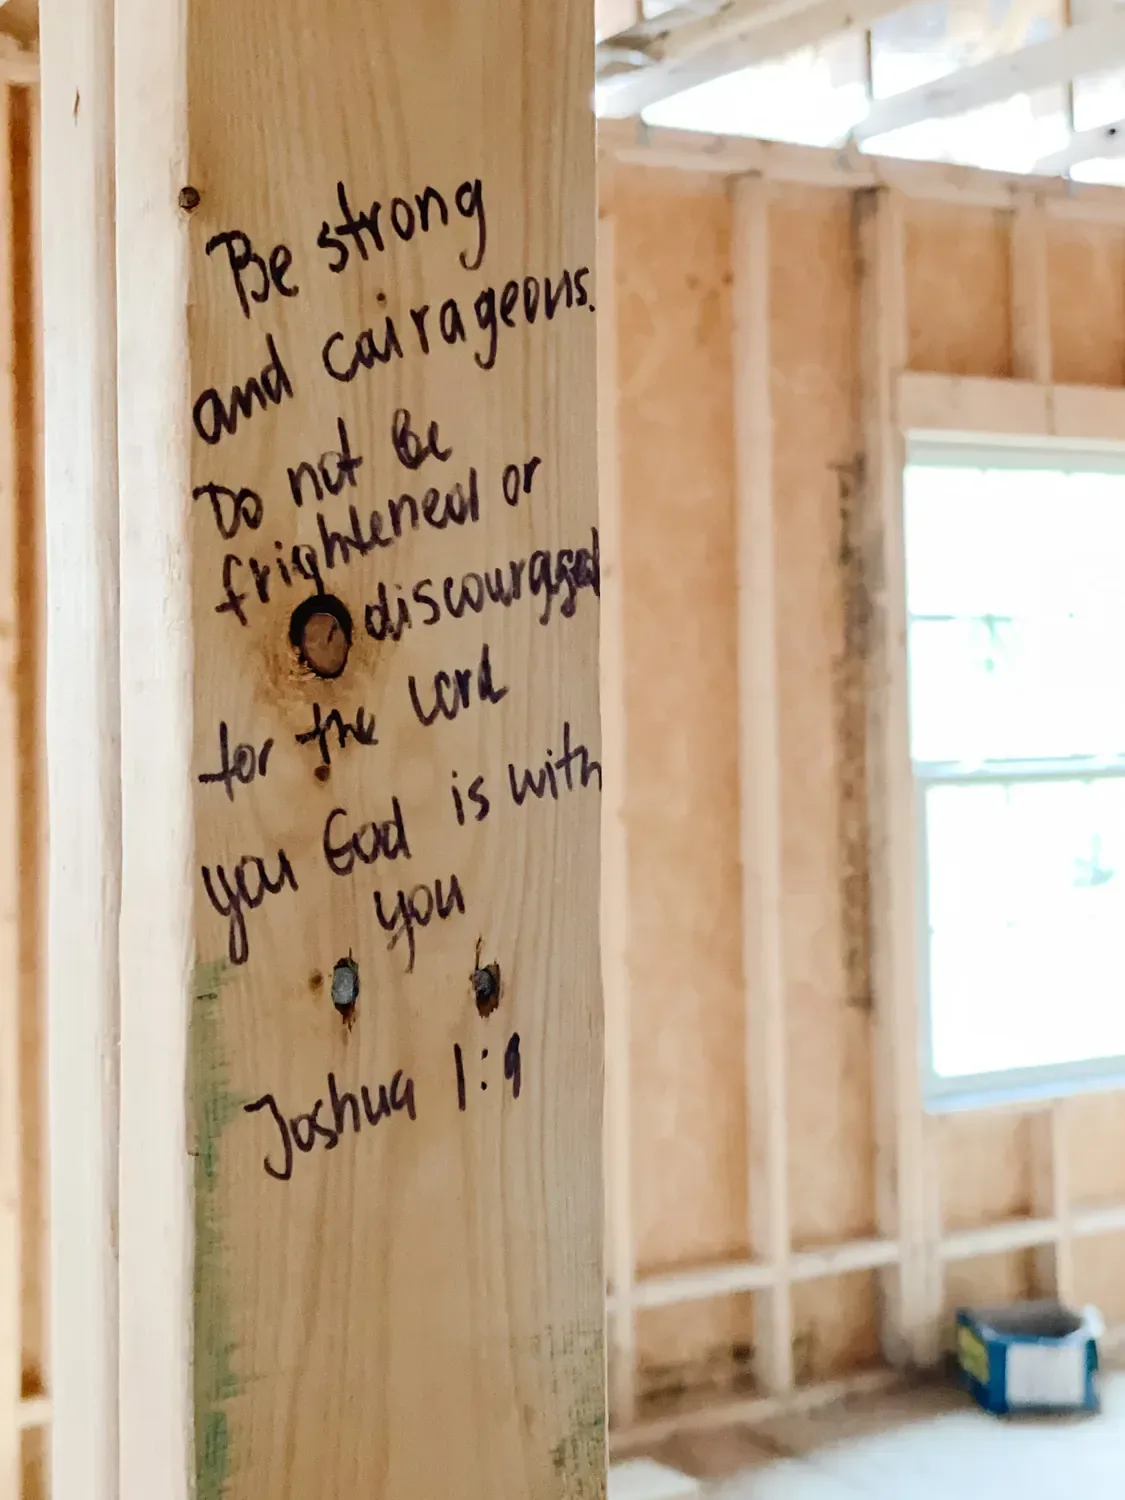 Be strong
and cairageous.
Do not be
frightened or
discouraged
for the Lord
you God is with
you
Joshua 1:9